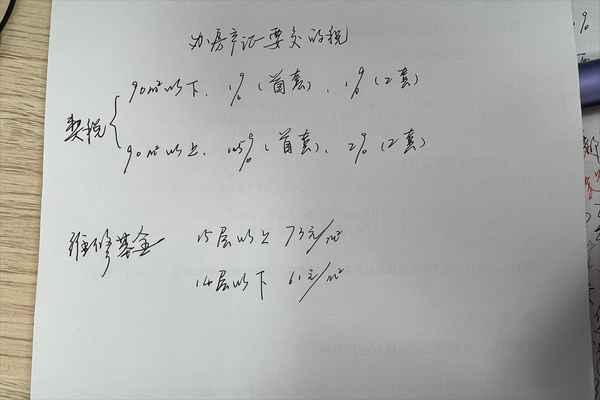 办房产证要交的税
契税
90m²以下、1%（首套）、1%（2套）
90m²以上、1.5%（首套）、2%（2套）
维修基金 15层以上 73元/m²
14层以下 61元/m²